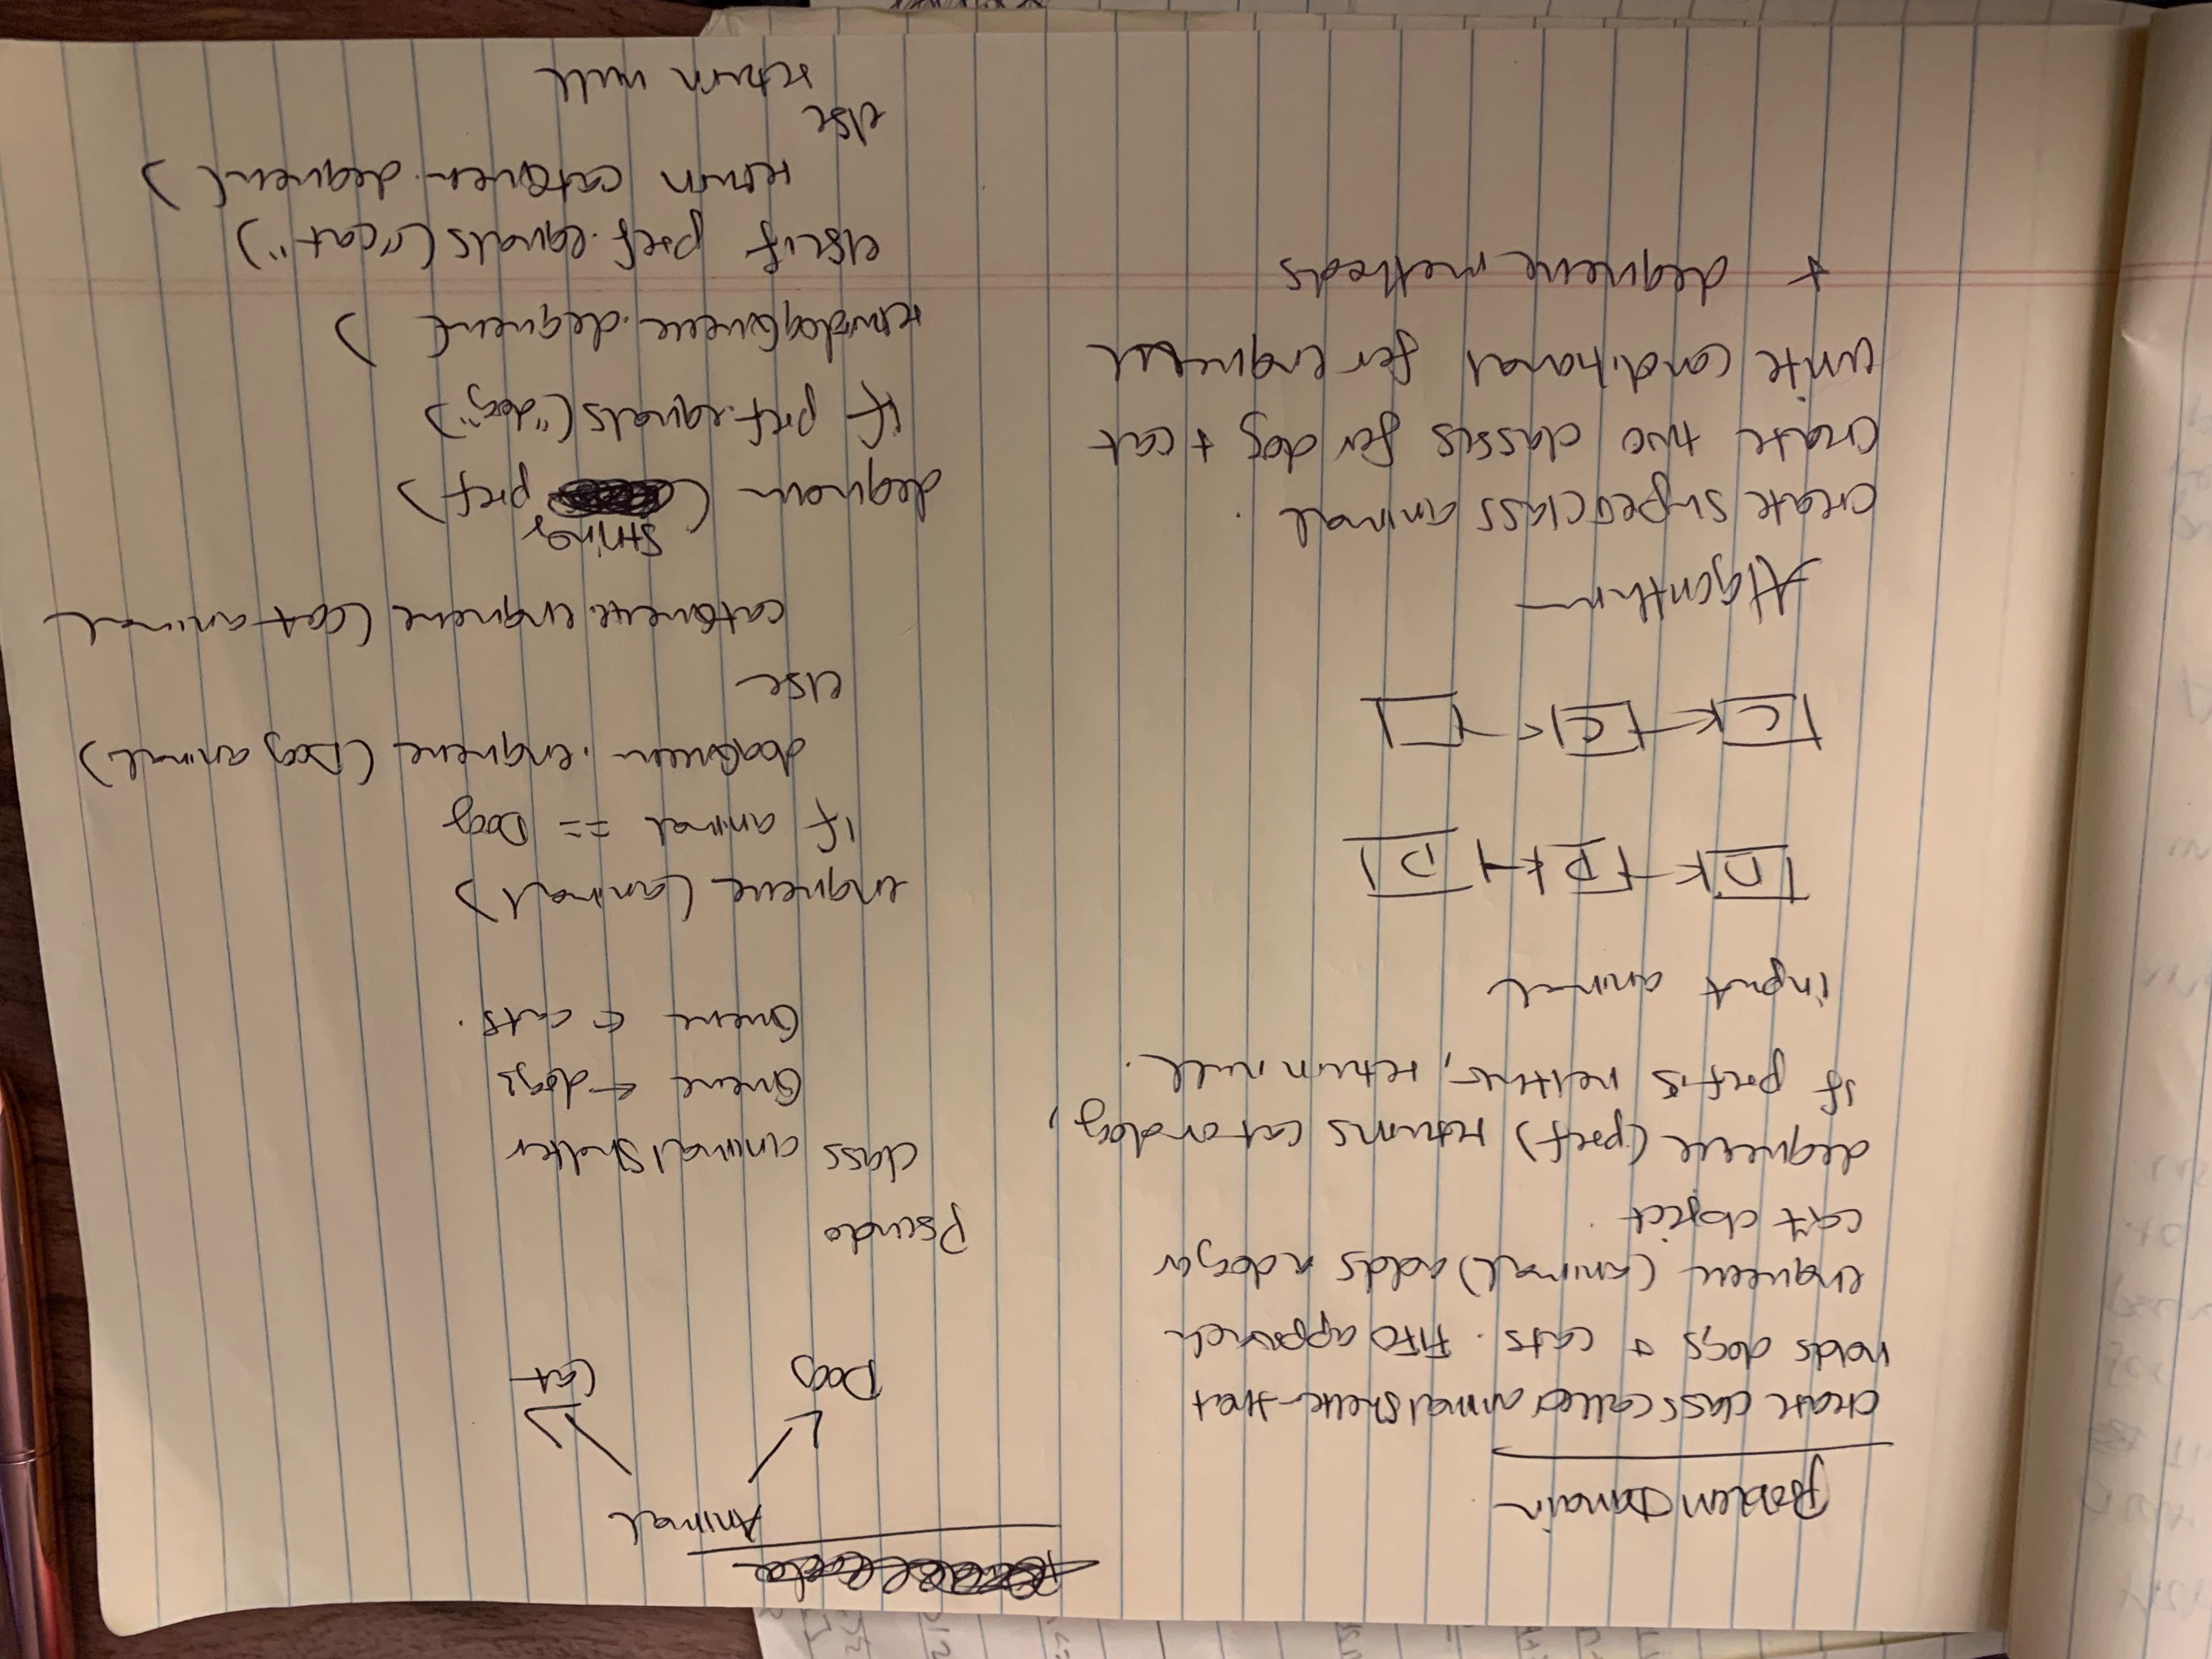 Problem Domain
create class called animalShelter that
holds dogs + cats. FIFO approach
enqueue (animal) adds a dog or
cat object.
dequeue (pref) returns cat or dog,
if pref is neither, return null.
input animal
D D D
C C
Algorithm
create superclass animal.
create two classes for dog + cat
write conditional for enqueue
+ dequeue methods
Animal
Dog Cat
Pseudo
class animalShelter
Queue ← dogs
Queue ← cats.
enqueue (animal)
if animal == Dog
dogQueue.enqueue (Dog animal)
else
catQueue.enqueue (Cat animal
String
dequeue ( pref)
if pref.equals("dog")
return dogQueue.dequeue( )
elseif pref.equals("cat")
return catQueue.dequeue( )
else
return null